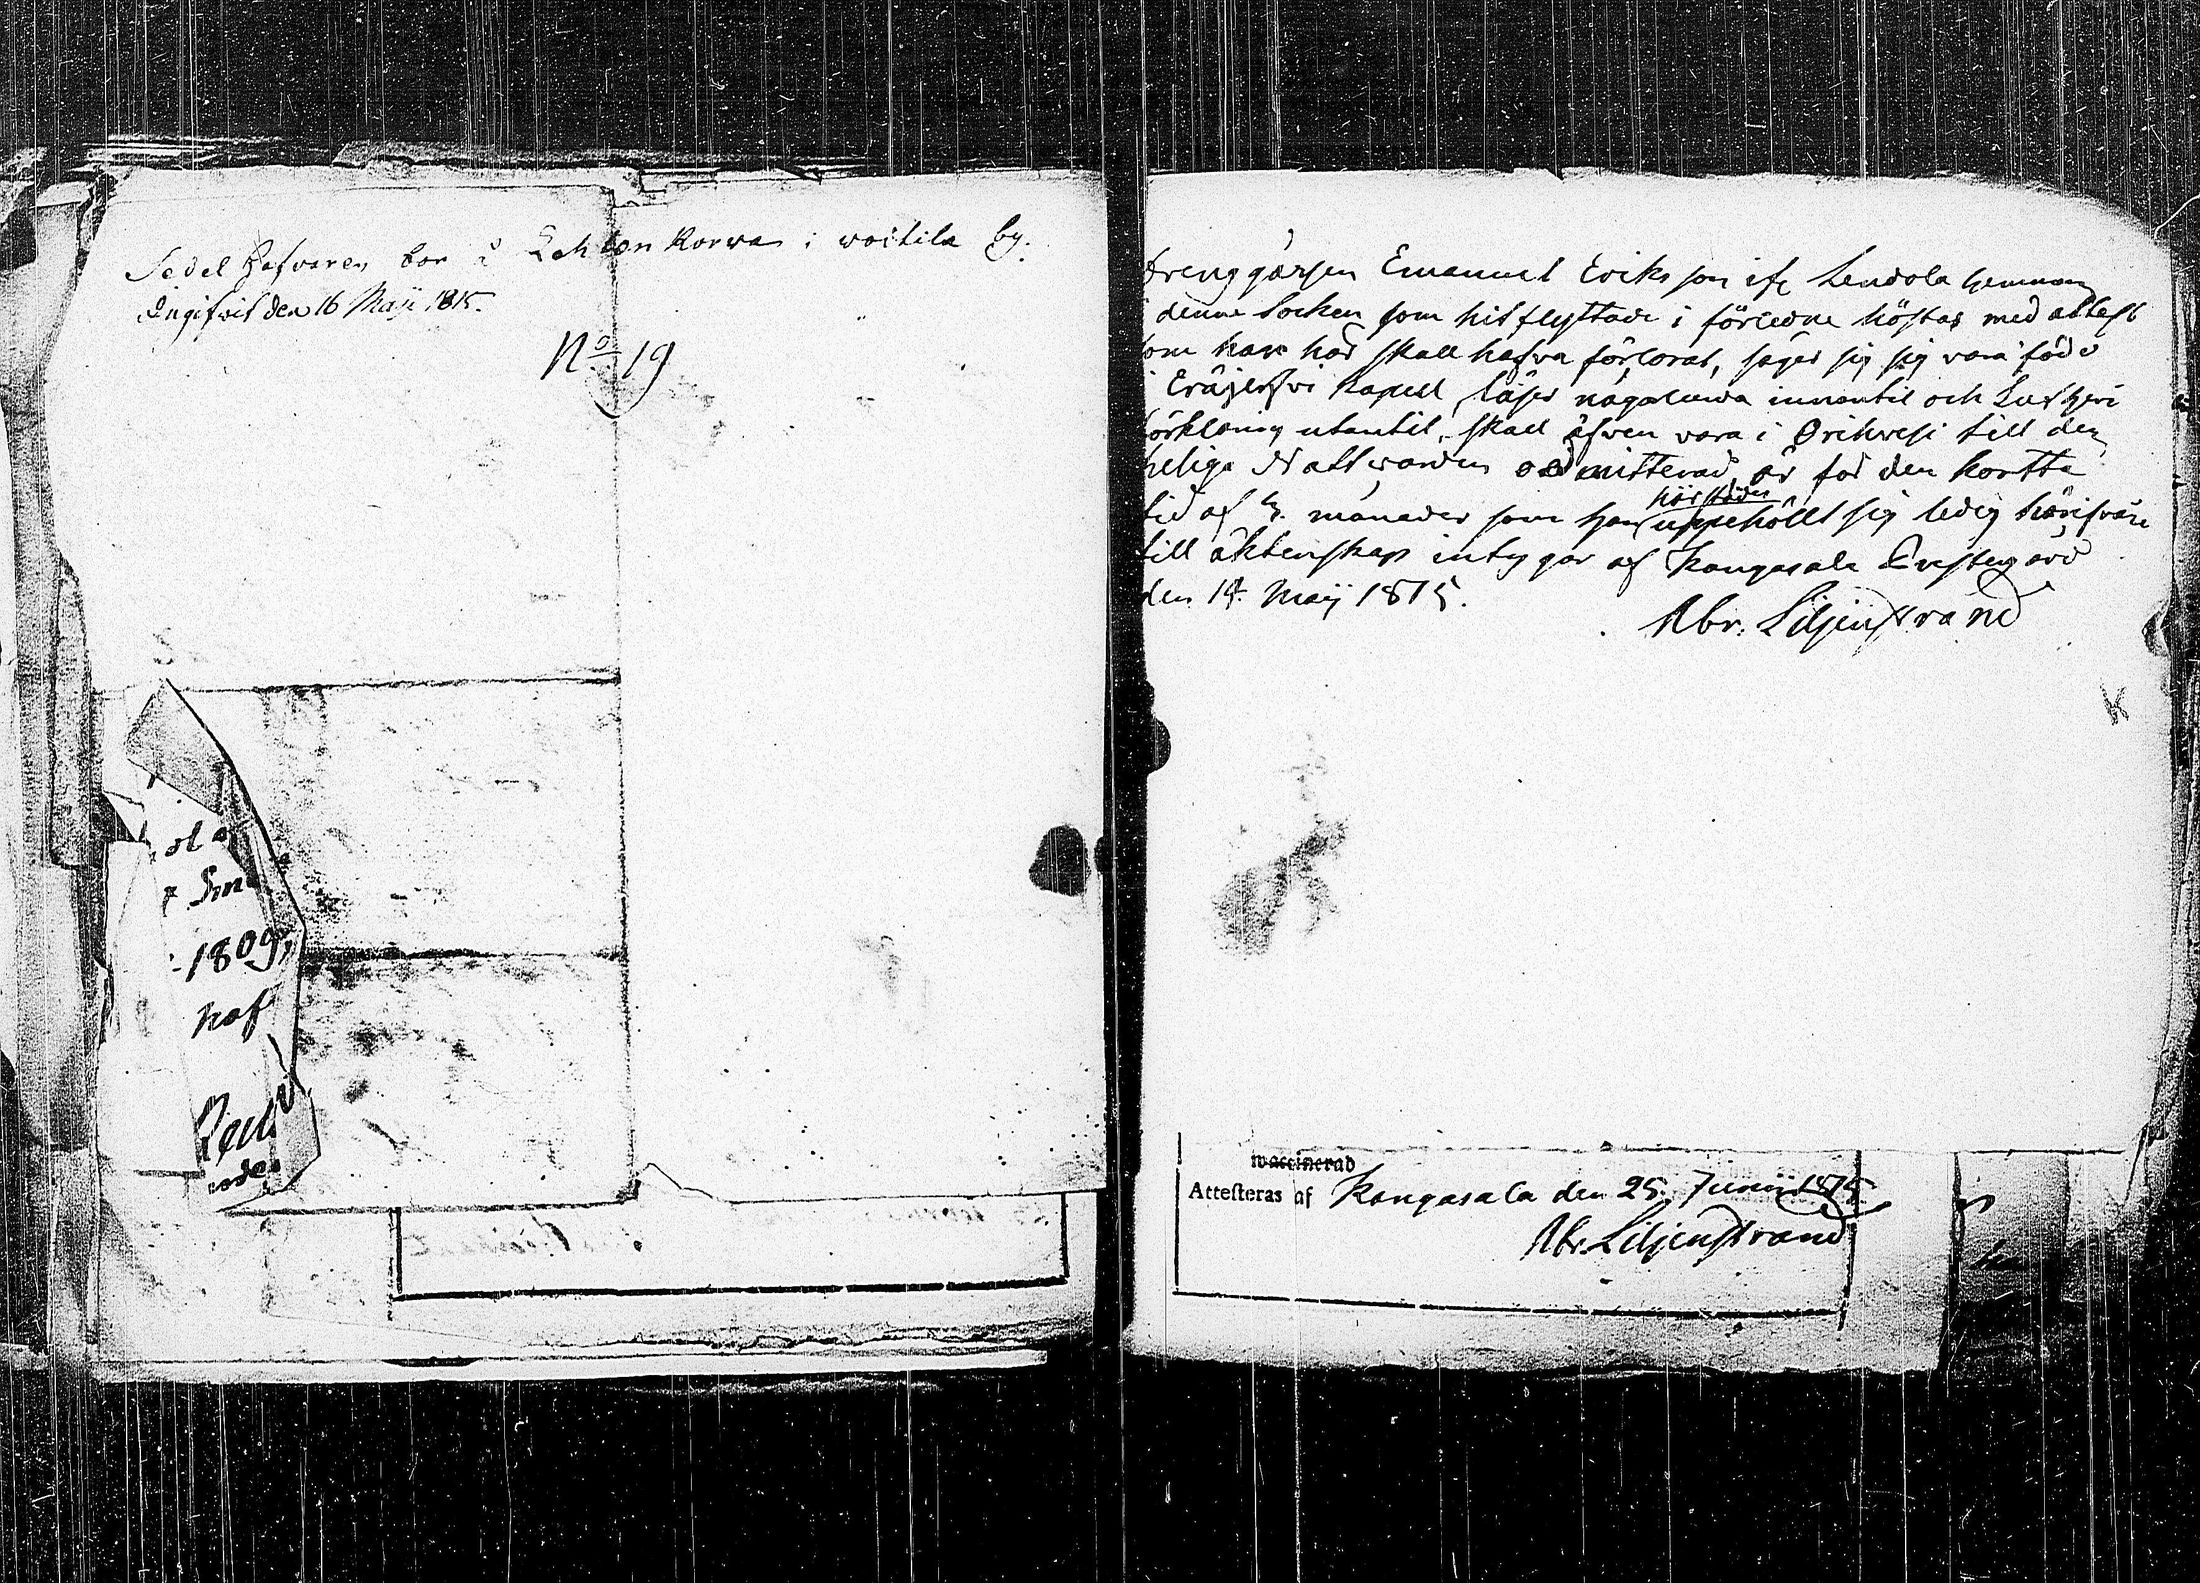 Sedel hafvaren bor å Lehden Korwa i woitila by.
Ingifvit den 16 Maji 1815.
No 19
ol
Sm
1809,
haf
Drenggåssen Emanuel Eriksson ifr. Lendola hemman
i denne Socken som hitflyttade i förledne höstas med attest
som han här skall hafva förlorat, säges sig sig vara född
i Eräjerfvi Kapell, läser någorlunda innantil och Lutheri
förklaring utantil, skall äfwen vara i Orihvesi till den
heliga Nattwarden admitterad, är för den kortta
härstädes
tid af månader som han uppehållt sig ledig härifrån
till äktenskap intygar af Kangasala Prestegård
den 14. Maij 1815.
Abr. Liljenstrand
K
waccinerad
Attesteras af Kangasala den 25. Junii 1815.
Abr. Liljenstrand